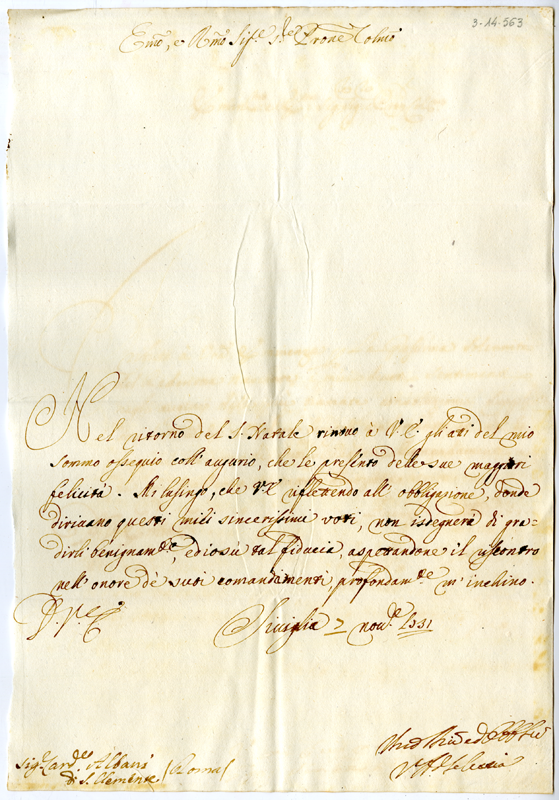 3-14-563
Emõ, e Rmõ Sigre. Sre. Prone Colmo
Nel ritorno del S. Natale rinuo à V.E. gli atti del mio
sommo ossequio coll' augurio, che le presento delle sue maggiori
felicità. Mi lusingo, che V.E. riflettendo all' obbligazione, donde
dirivano questi miei sincerissimi voti, non isdegnerà di gra-
dirli benignamte, ed io sù tal fiducia, aspettandone il riscontro
nell' onore de' suoi comandamenti, profondamte m'inchino.
D. V. E.
Siviglia 7 novre.
Sigr Carde Albani
di S. Clemente (Roma)